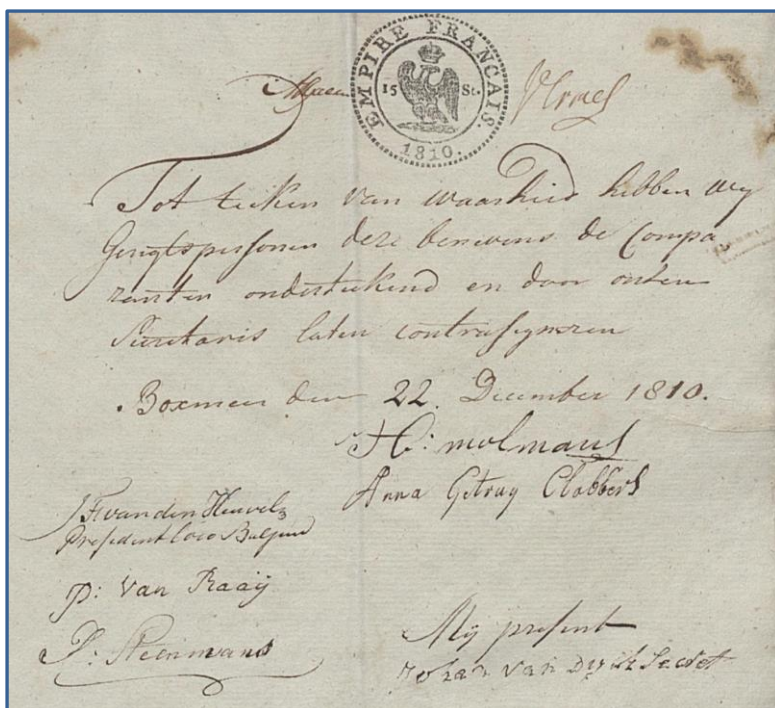 EMPIRE FRANCAIS.
15 St.
1810.
Tot teeken van waarheid hebben wy
Gerigtspersonen deze benevens de Compa
ranten onderteekend en door onsen
Secretaris laten contrasigneren
Boxmeer den 22. December 1810.
H: molmans
Anna Getruy Clabbers
J F van den Heuvel
President loco Baljuw
P: Van Raaij
P: Steenmans
Mij present
Johan van Dyck Secret